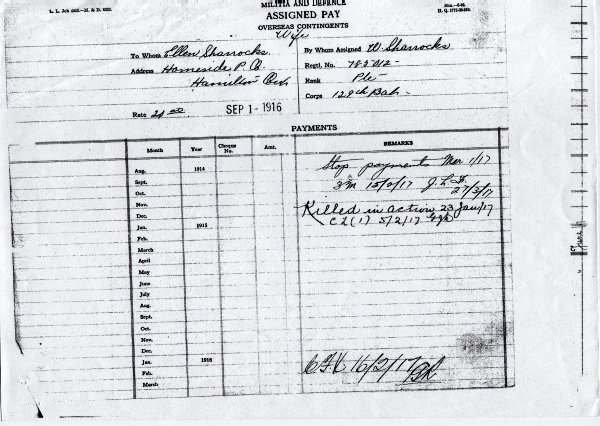 MILITIA AND DEFENCE
ASSIGNED PAY
OVERSEAS CONTINGENTS
Wife
To Whom Ellen Sharrocks
Address Homeside P.O.
Hamilton Ont.
By Whom Assigned W. Sharrocks
Regtl. No. 782012
Rank Pte
Corps 128th Batn.
Rate 20 00
SEP 1 - 1916
PAYMENTS
Month Year Cheque No. Amt. REMARKS
Aug. 1914
Sept.
Oct.
Nov.
Dec.
Jan. 1915
Feb.
March
April
May
June
July
Aug.
Sept.
Oct.
Nov.
Dec.
Jan. 1916
Feb.
March
Stop payments Mar 1/17
3m 15/2/17
27/3/17
Killed in action 23 Jan/17
C L (1) 5/2/17
16/2/17